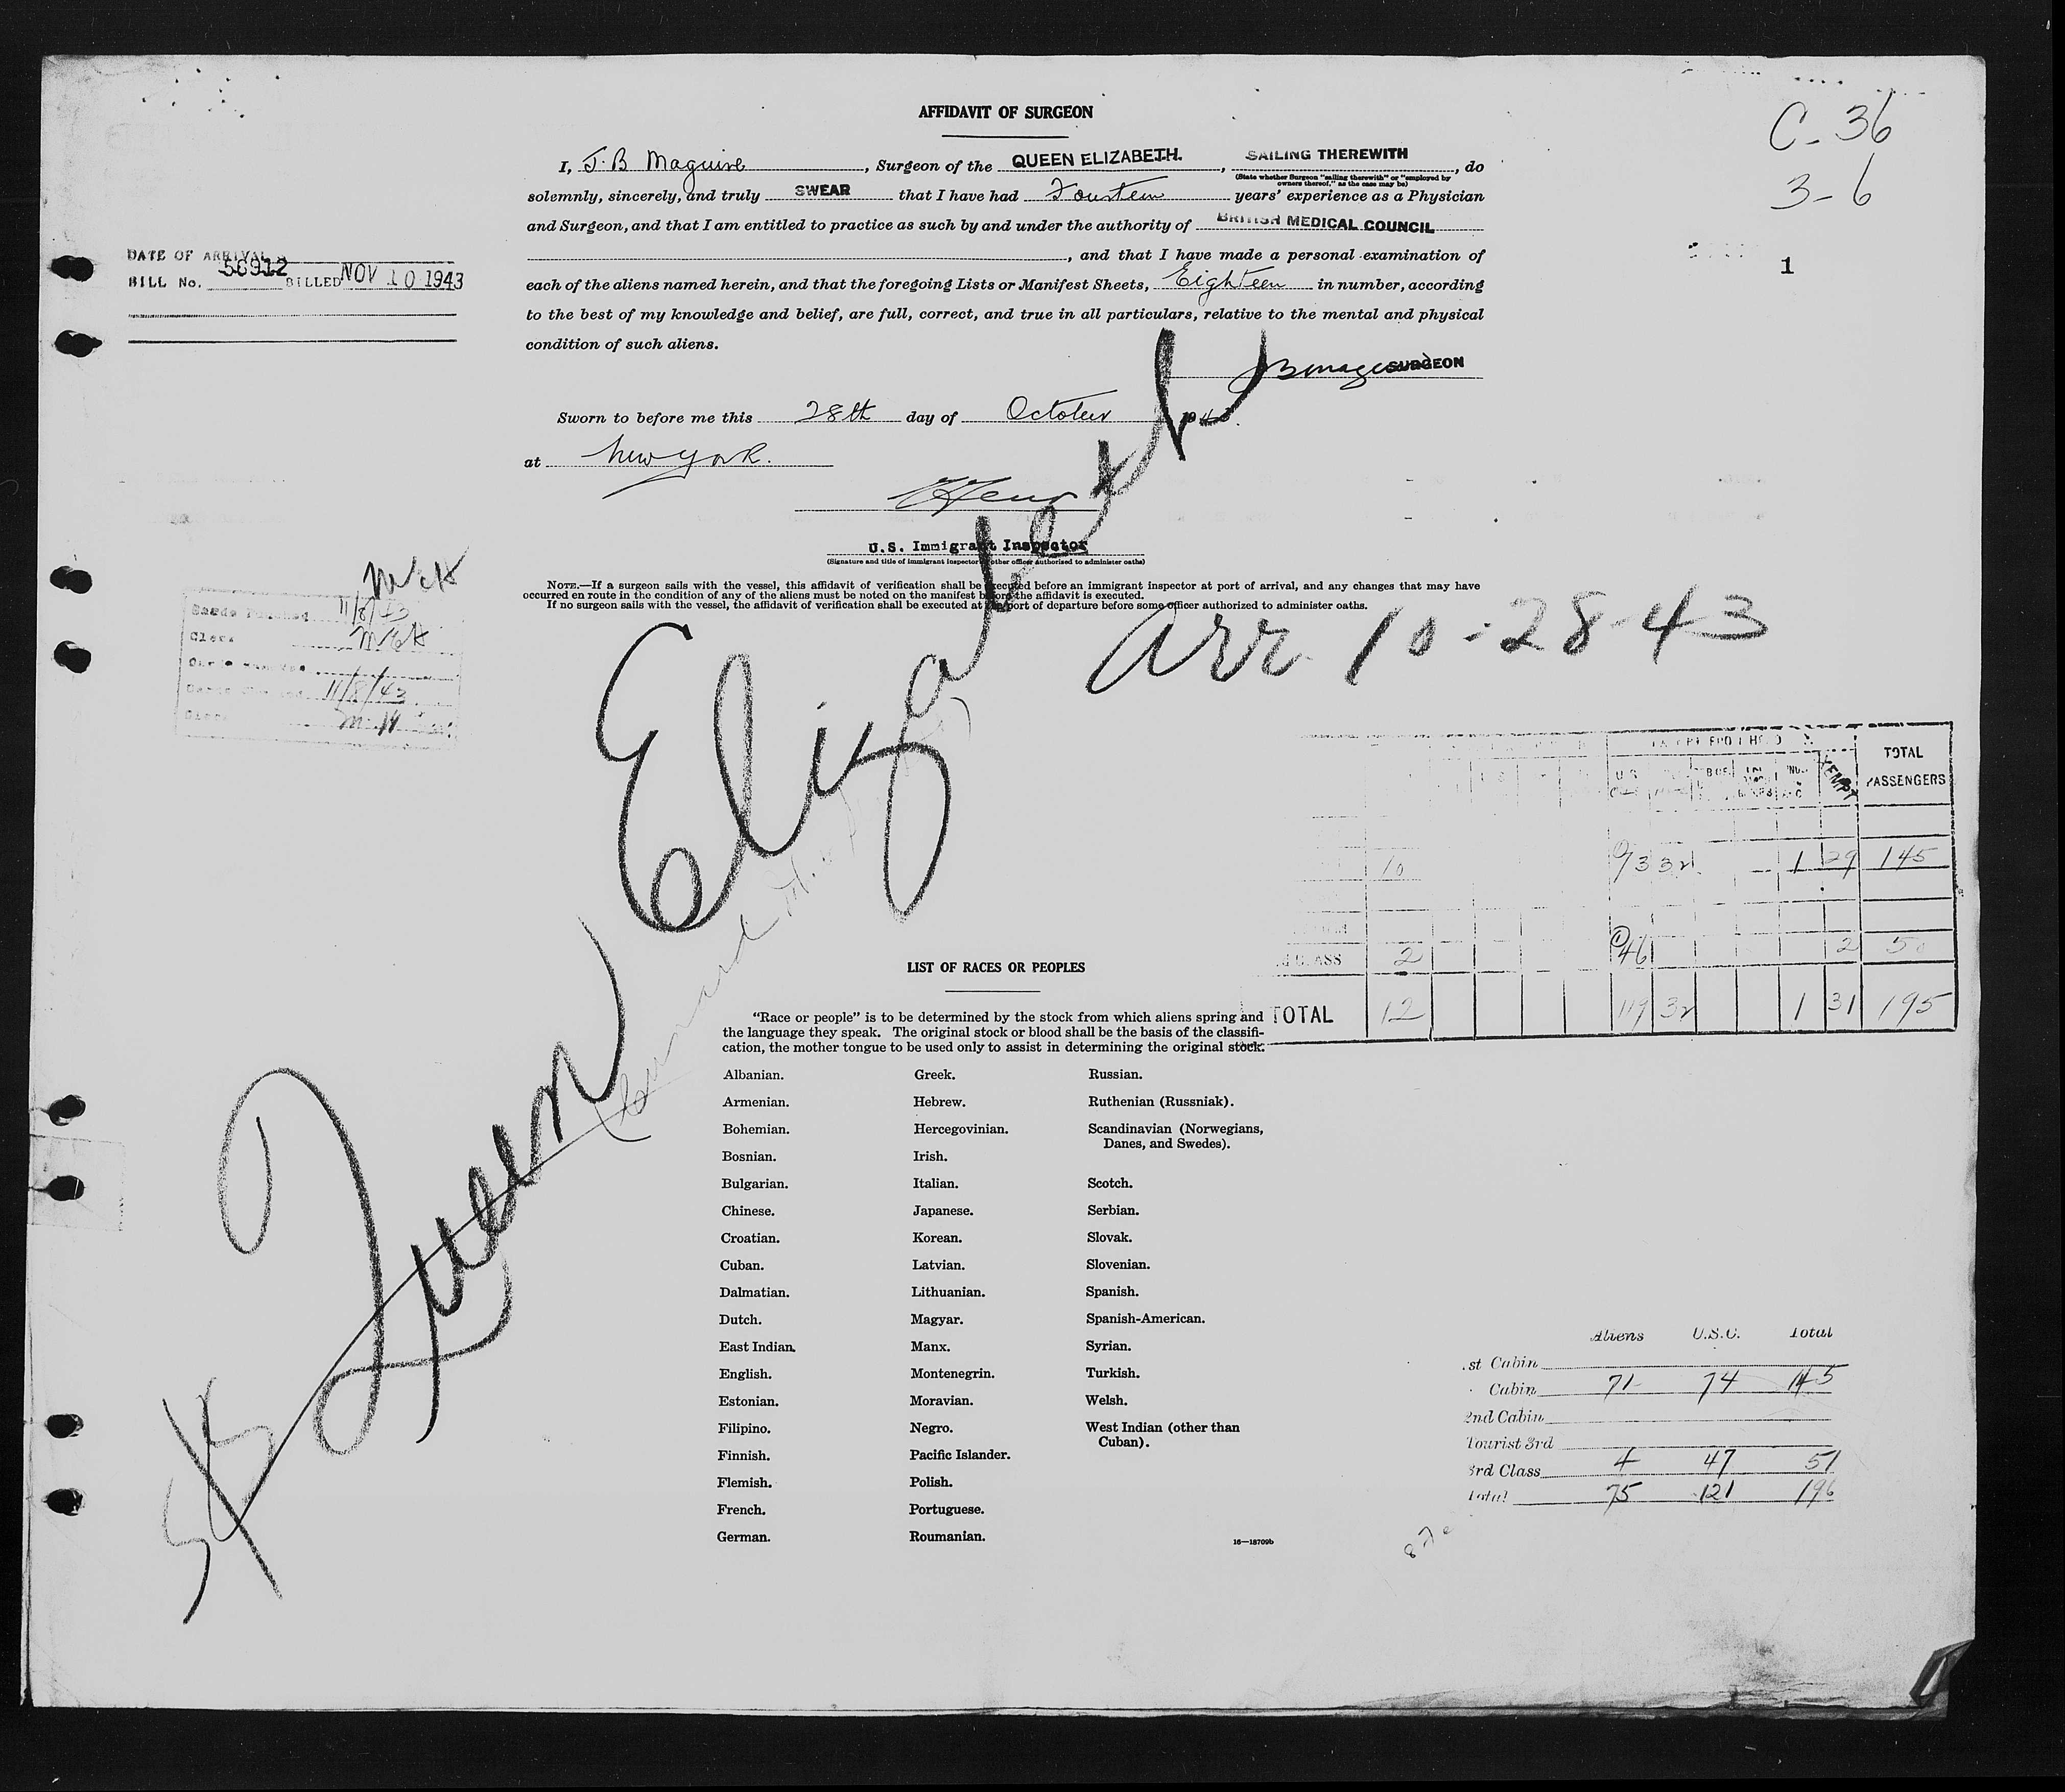 AFFIDAVIT OF SURGEON
C-36
3-6
1
I, J. B Maguire, Surgeon of the QUEEN ELIZABETH., SAILING THEREWITH, do
(State whether Surgeon "sailing therewith" or "employed by
owners thereof," as the case may be)
solemnly, sincerely, and truly SWEAR that I have had Fourteen years' experience as a Physician
and Surgeon, and that I am entitled to practice as such by and under the authority of BRITISH MEDICAL COUNCIL
, and that I have made a personal examination of
each of the aliens named herein, and that the foregoing Lists or Manifest Sheets, Eighteen in number, according
to the best of my knowledge and belief, are full, correct, and true in all particulars, relative to the mental and physical
condition of such aliens.
SURGEON
DATE OF ARRIVAL
BILL No. 56912 BILLED NOV 10 1943
Sworn to before me this 28th day of October
at New York.
U.S. Immigrant Inspector
(Signature and title of immigrant inspector or other officer authorized to administer oaths)
NOTE.—If a surgeon sails with the vessel, this affidavit of verification shall be executed before an immigrant inspector at port of arrival, and any changes that may have
occurred en route in the condition of any of the aliens must be noted on the manifest before the affidavit is executed.
If no surgeon sails with the vessel, the affidavit of verification shall be executed at the port of departure before some officer authorized to administer oaths.
11/8/43
Clerk
11/8/43
Queen Elizabeth
arr. 10-28-43
TOTAL
PASSENGERS
10 73 32 1 29 145
CLASS 2 46 2 50
TOTAL 12 119 32 1 31 195
LIST OF RACES OR PEOPLES
"Race or people" is to be determined by the stock from which aliens spring and
the language they speak. The original stock or blood shall be the basis of the classifi-
cation, the mother tongue to be used only to assist in determining the original stock.
Albanian.
Armenian.
Bohemian.
Bosnian.
Bulgarian.
Chinese.
Croatian.
Cuban.
Dalmatian.
Dutch.
East Indian.
English.
Estonian.
Filipino.
Finnish.
Flemish.
French.
German.
Greek.
Hebrew.
Hercegovinian.
Irish.
Italian.
Japanese.
Korean.
Latvian.
Lithuanian.
Magyar.
Manx.
Montenegrin.
Moravian.
Negro.
Pacific Islander.
Polish.
Portuguese.
Roumanian.
Russian.
Ruthenian (Russniak).
Scandinavian (Norwegians,
Danes, and Swedes).
Scotch.
Serbian.
Slovak.
Slovenian.
Spanish.
Spanish-American.
Syrian.
Turkish.
Welsh.
West Indian (other than
Cuban).
16—18709b
Aliens U.S.C. Total
1st Cabin
Cabin 71 74 145
2nd Cabin
Tourist 3rd
3rd Class 4 47 51
Total 75 121 196